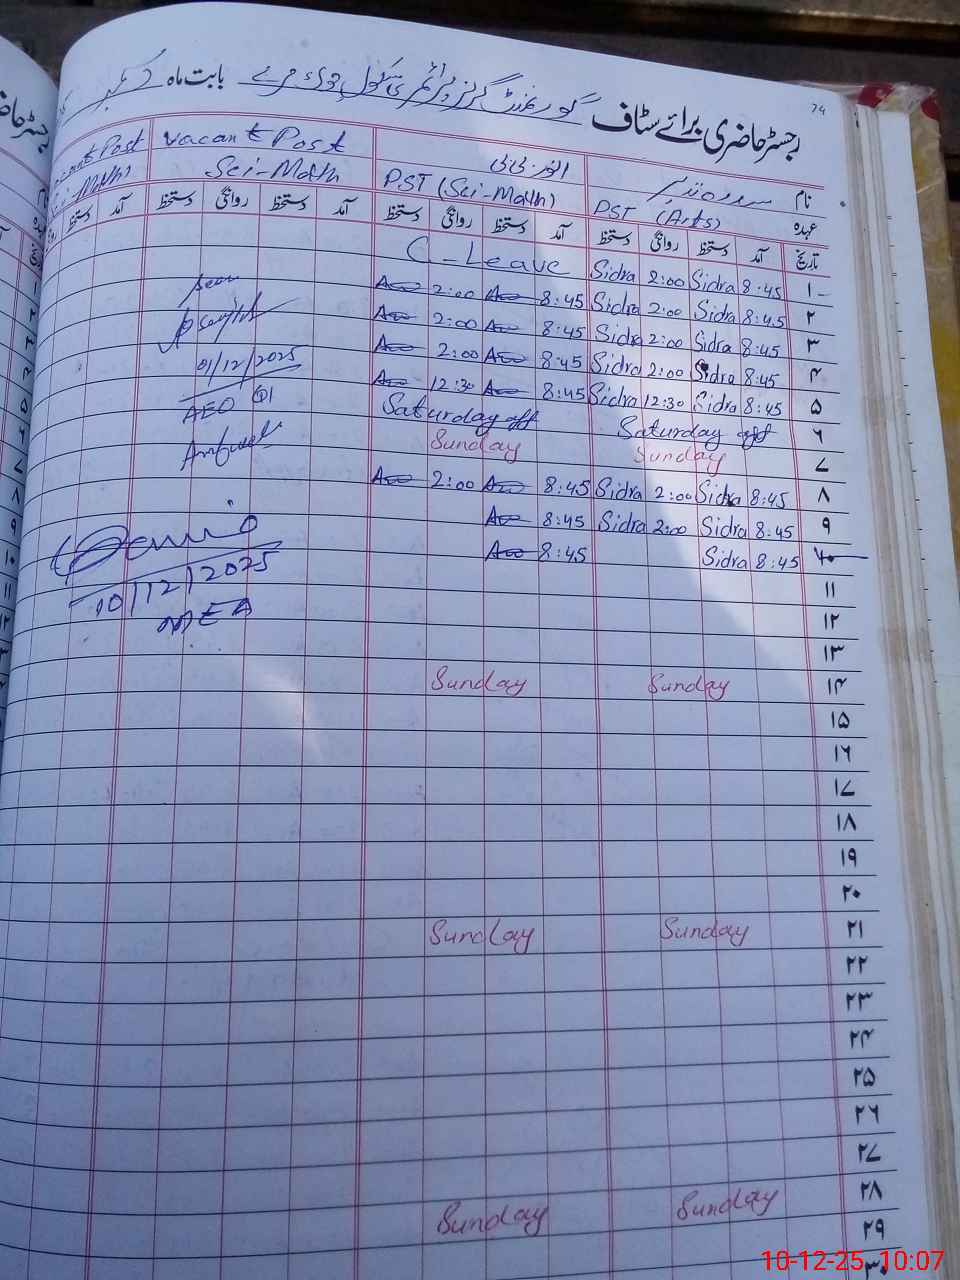 74
رجسٹر حاضری برائے سٹاف گورنمنٹ گرلز پرائمری سکول بابت ماہ دسمبر
نام
Vacant Post
عہدہ PST (Arts) PST (Sci-Math) Sci-Math
تاریخ آمد دستخط روانگی دستخط آمد دستخط روانگی دستخط آمد دستخط روانگی دستخط آمد دستخط
۱ 8:45 Sidra 2:00 Sidra C-Leave
۲ 8:45 Sidra 2:00 Sidra 8:45 2:00
۳ 8:45 Sidra 2:00 Sidra 8:45 2:00
۴ 8:45 Sidra 2:00 Sidra 8:45 2:00
۵ 8:45 Sidra 12:30 Sidra 8:45 12:30
۶ Saturday off Saturday off
۷ Sunday Sunday
۸ 8:45 Sidra 2:00 Sidra 8:45 2:00
۹ 8:45 Sidra 2:00 Sidra 8:45
۱۰ 8:45 Sidra 8:45
۱۱
۱۲
۱۳
۱۴ Sunday Sunday
۱۵
۱۶
۱۷
۱۸
۱۹
۲۰
۲۱ Sunday Sunday
۲۲
۲۳
۲۴
۲۵
۲۶
۲۷
۲۸ Sunday Sunday
۲۹
۳۰
seen
01/12/2025
AEO
10/12/2025
MEA
10-12-25 10:07